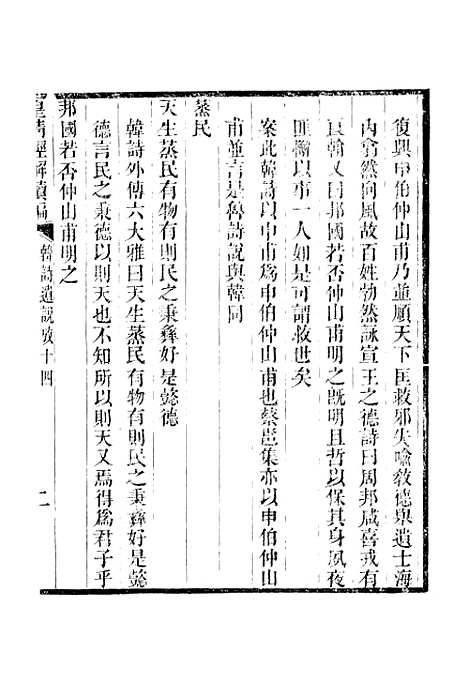 復興申伯仲山甫乃並順天下匡救邪失喻敎德舉遺士海
內翕然向風故百姓勃然詠宣王之德詩曰周邦咸喜戎有
良翰又曰邦國若否仲山甫明之旣明且哲以保其身夙夜
匪懈以事一人如是可謂救世矣
案此韓詩以申甫爲申伯仲山甫也蔡邕集亦以申伯仲山
甫並言是魯詩說與韓同
蒸民
天生蒸民有物有則民之秉彝好是懿德
韓詩外傳六大雅曰天生蒸民有物有則民之秉彝好是懿
德言民之秉德以則天也不知所以則天又焉得爲君子乎
邦國若否仲山甫明之
皇淸經解續編
韓詩遺說攷十四
二